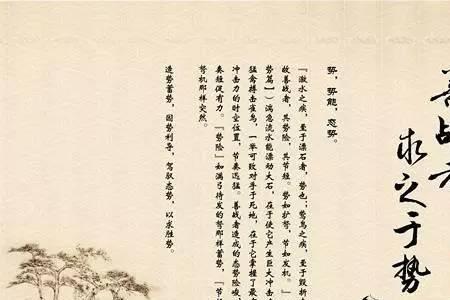 善战者
求之于势
势，势能，态势。
『激水之疾，至于漂石者，势也；鸷鸟之疾，至于毁折
故善战者，其势险，其节短。势如扩弩，节如发机。』
势篇】）湍急流水能漂动大石，在于使它产生巨大冲击
猛禽搏击雀鸟，一举可致对手于死地，在于它掌握了最
冲击力的时空位置，节奏迅猛。善战者造成的态势险峻
奏短促有力。『势险』如满弓待发的弩那样蓄势，『节
弩机那样突然。
造势蓄势，因势利导，驾驭态势，以求胜势。